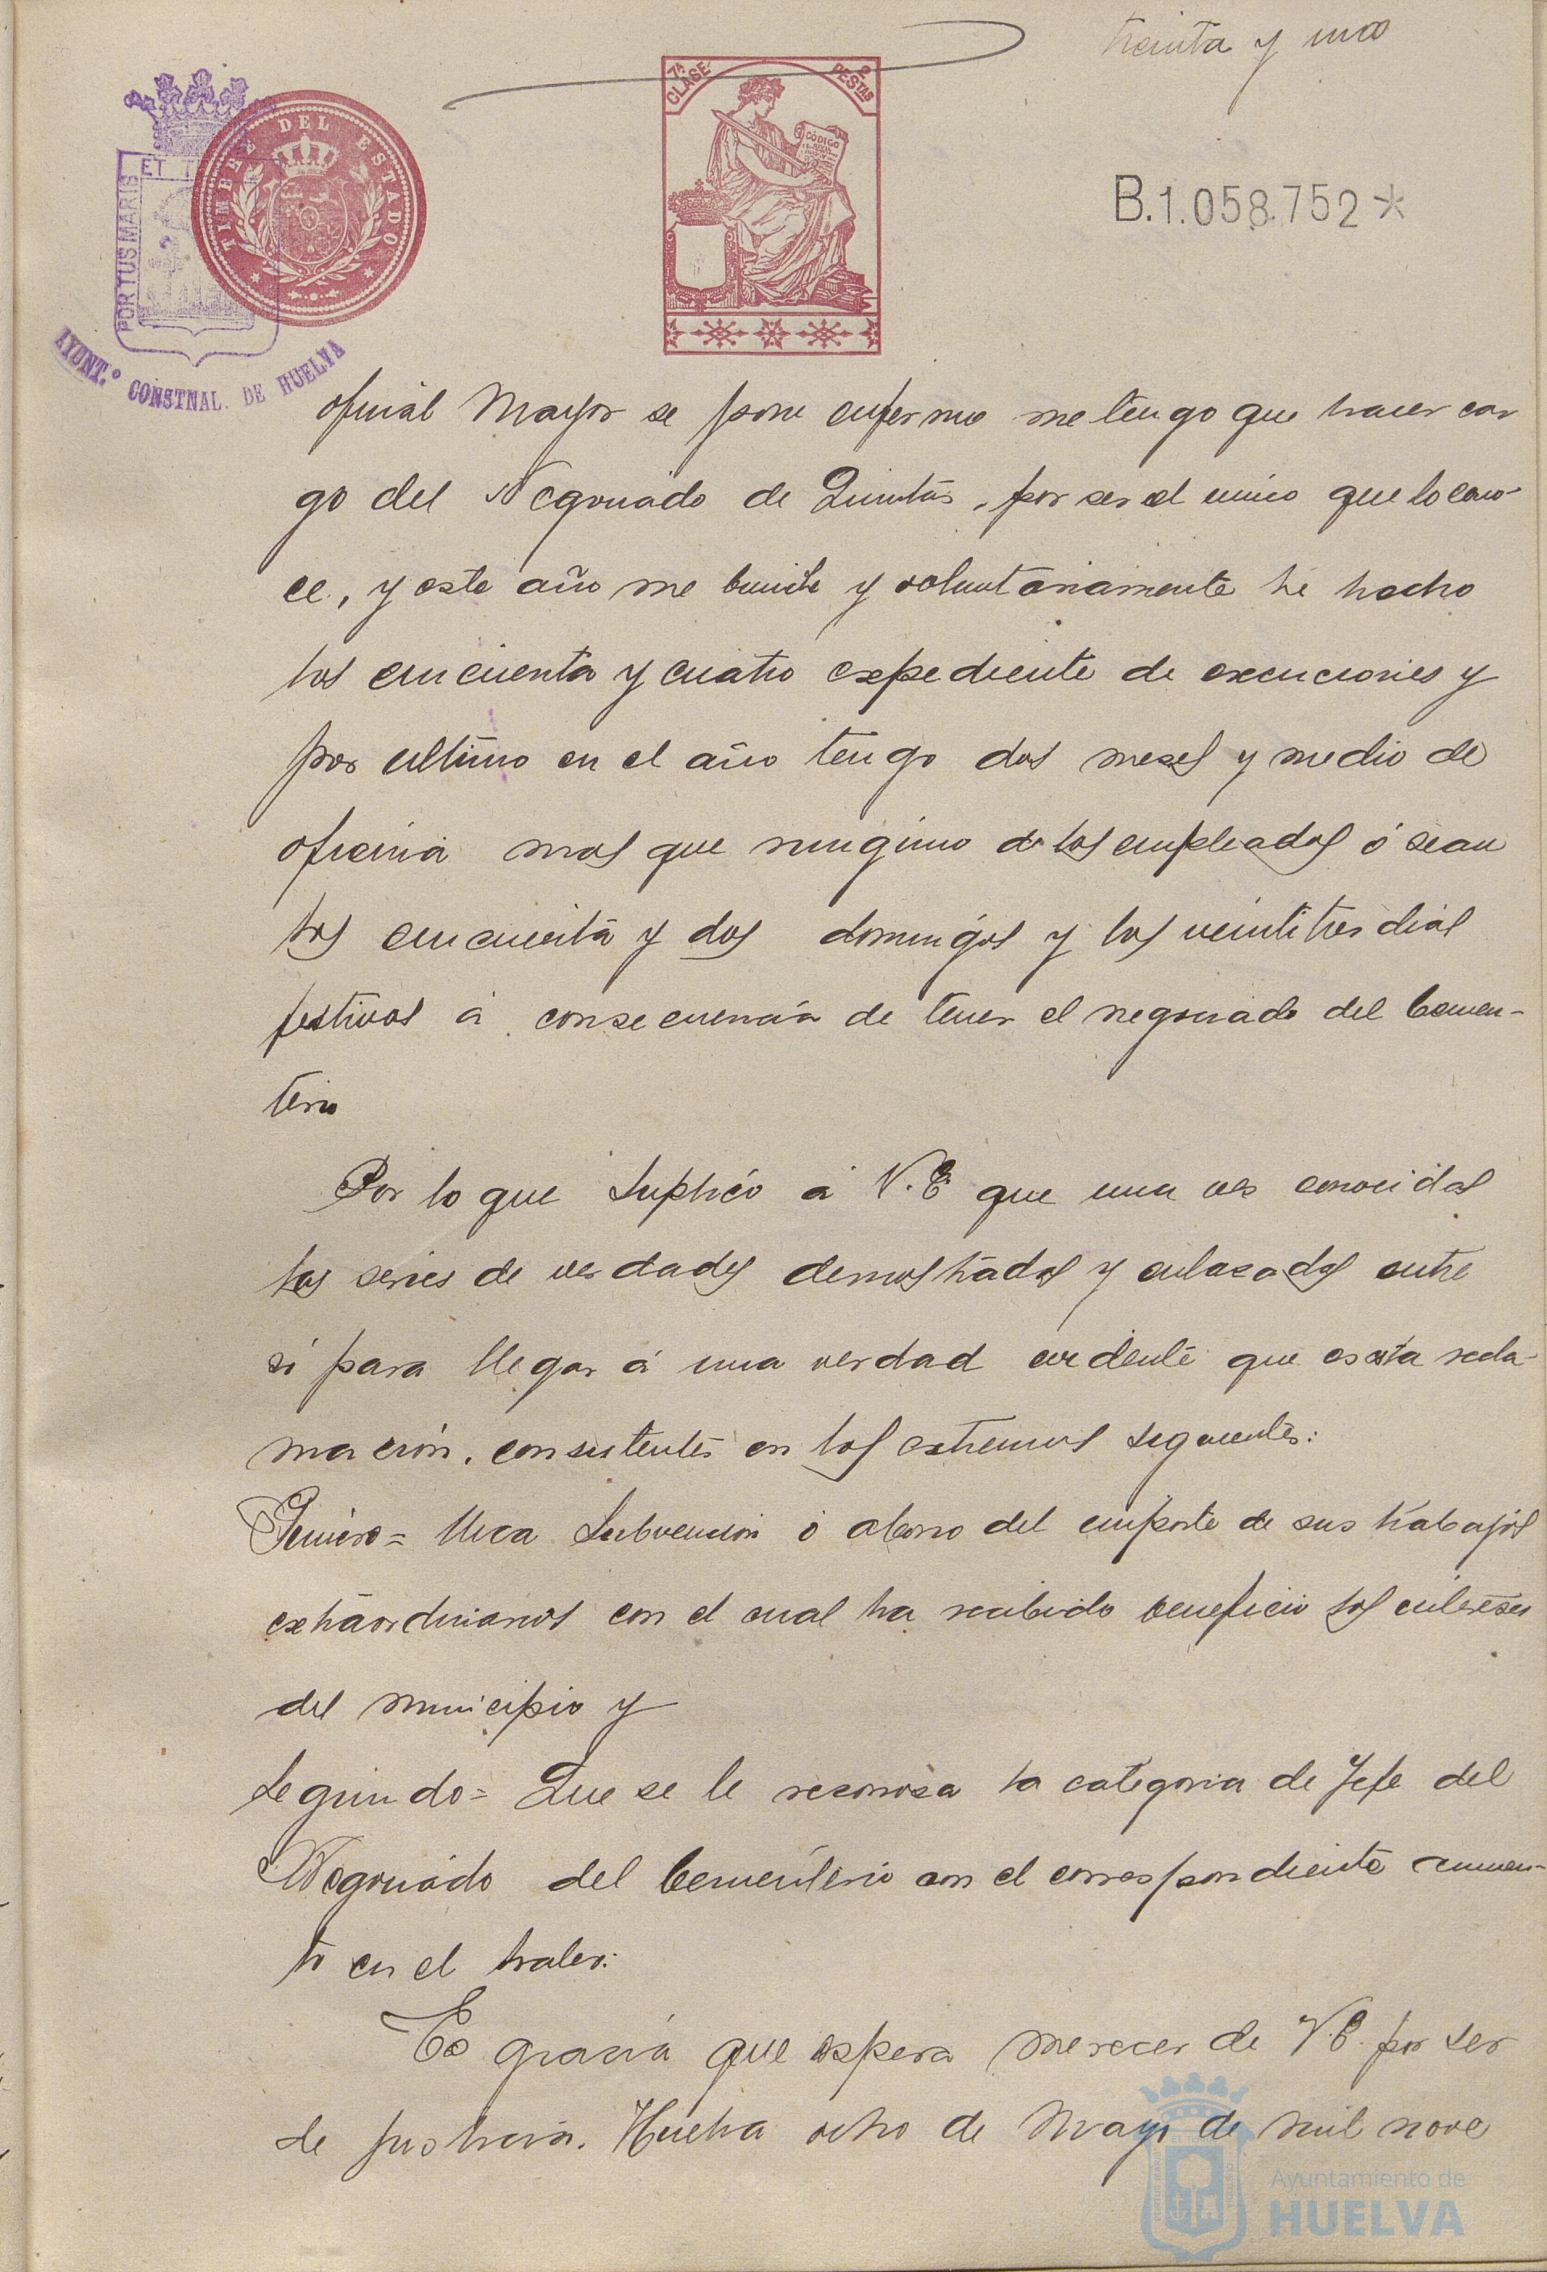 treinta y uno
7ª CLASE
2 PESTAS
CÓDIGO
TIMBRE DEL ESTADO
PORTUS MARIS ET T
AYUNT.º CONSTNAL. DE HUELVA
B.1.058.752*
oficial Mayor se pone enfermo me tengo que hacer car
go del Negociado de Quintas, por ser el unico que lo cono-
ce, y este año me brinde y voluntariamente he hecho
los cincuenta y cuatro expediente de exenciones y
por ultimo en el año tengo dos meses y medio de
oficina mas que ninguno de los empleados ó sean
los cincuenta y dos domingos y los veintitres dias
festivos á consecuencia de tener el negociado del Cemen-
terio
Por lo que Suplico á V.E. que una ves conocidas
las series de verdades demostradas y enlasadas entre
si para llegar á una verdad evidente que es esta recla-
mación, consistentes en los estremos siguientes:
Primero= Una Subvención ó abono del importe de sus trabajos
extraordinarios con el cual ha recibido beneficio los intereses
del municipio y
Segundo= Que se le reconosca la categoria de Jefe del
Negociado del Cementerio con el correspondiente aumen-
to en el haber:
Es gracia que espera merecer de V.E. por ser
de justicia. Huelva ocho de Mayo de mil nove
Ayuntamiento de
HUELVA